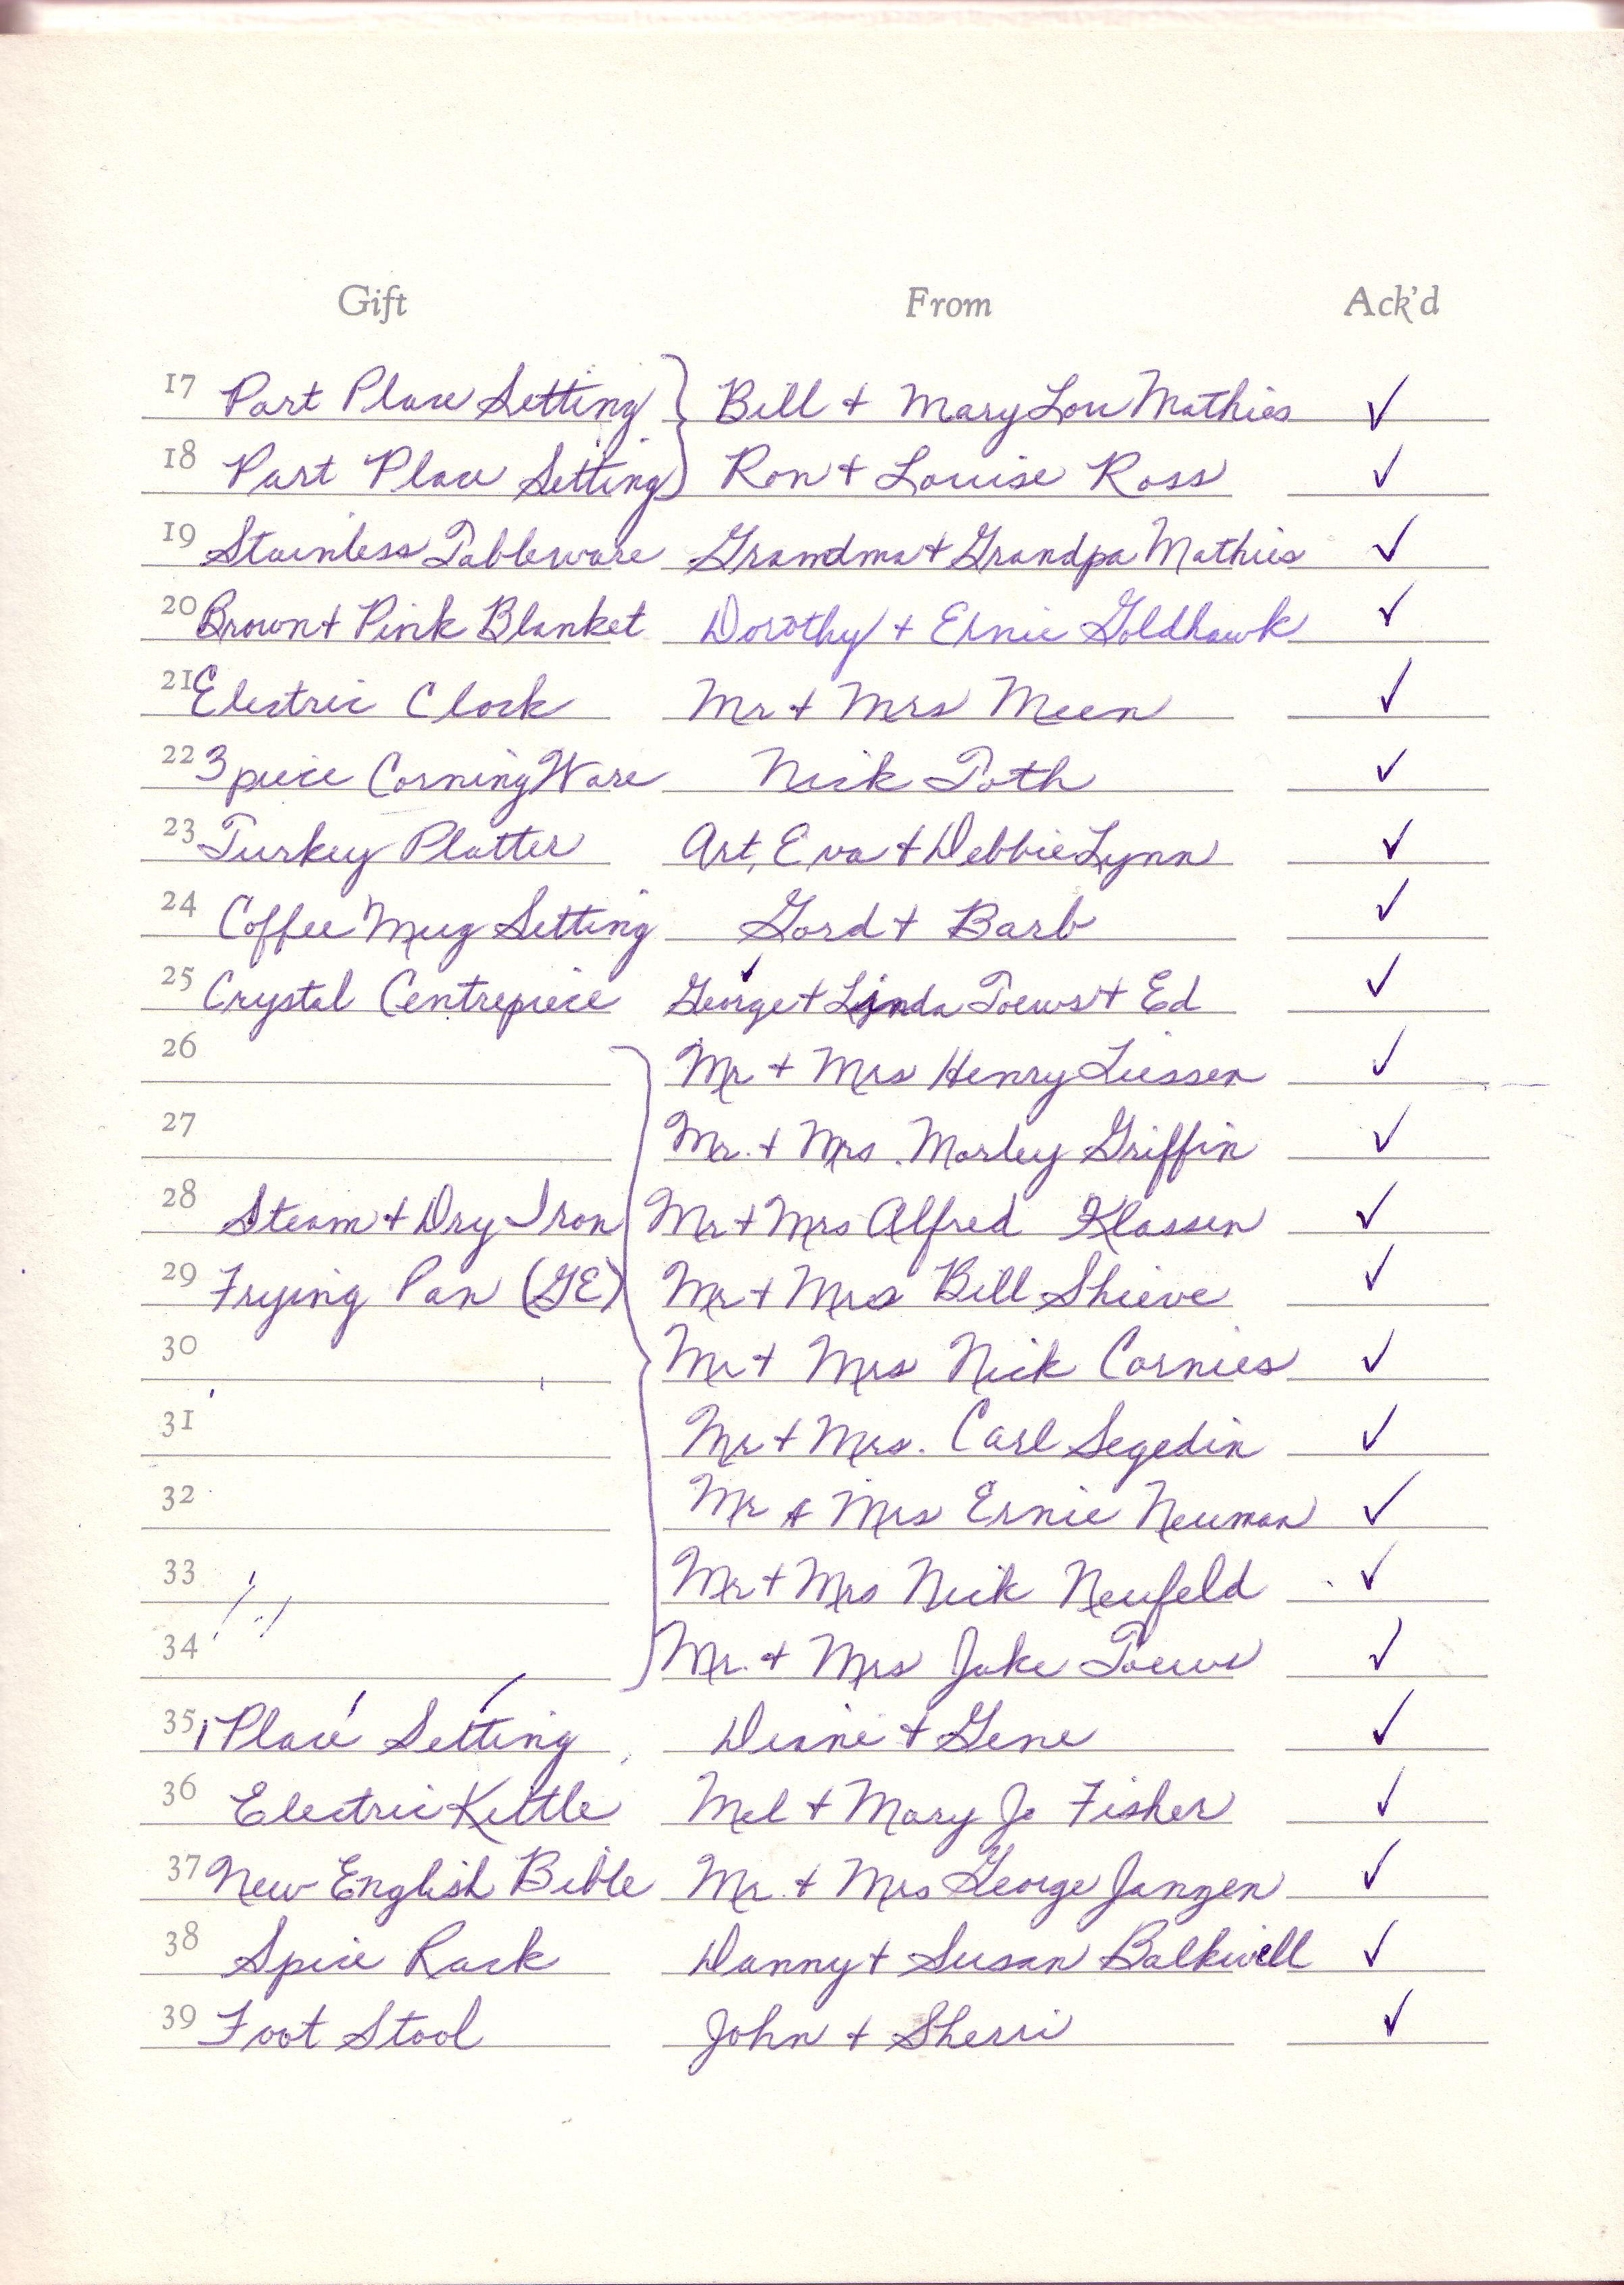 Gift From Ack'd
17 Part Place Setting } Bill + Mary Lou Mathies ✓
18 Part Place Setting } Ron + Louise Ross ✓
19 Stainless Tableware Grandma + Grandpa Mathies ✓
20 Brown + Pink Blanket Dorothy + Ernie Goldhawk ✓
21 Electric Clock Mr + Mrs Meen ✓
22 3 piece Corning Ware Nick Toth ✓
23 Turkey Platter Art, Eva + Debbie Lynn ✓
24 Coffee Mug Setting Gord + Barb ✓
25 Crystal Centrepiece George + Lynda Toews + Ed ✓
26 Mr + Mrs Henry Liessen ✓
27 Mr. + Mrs. Morley Griffin ✓
28 Steam + Dry Iron Mr + Mrs Alfred Klassen ✓
29 Frying Pan (GE) Mr + Mrs Bill Shieve ✓
30 Mr + Mrs Nick Cornies ✓
31 Mr + Mrs. Carl Segedin ✓
32 Mr + Mrs Ernie Neuman ✓
33 Mr + Mrs Nick Neufeld ✓
34 Mr. + Mrs Jake Toews ✓
35 1 Place Setting Diane + Gene ✓
36 Electric Kettle Mel + Mary Jo Fisher ✓
37 New English Bible Mr. + Mrs George Janzen ✓
38 Spice Rack Danny + Susan Balkwill ✓
39 Foot Stool John + Sherri ✓